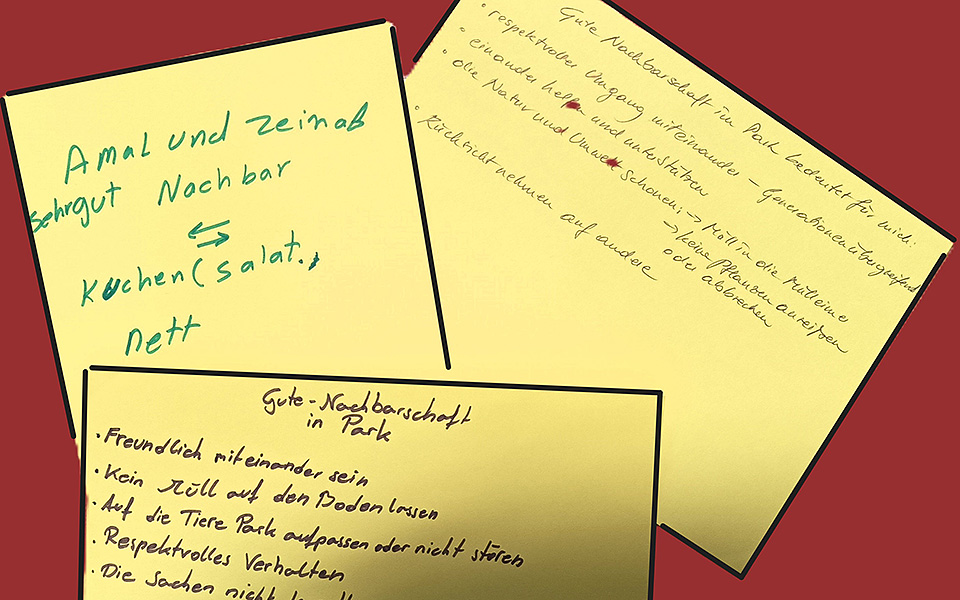 Amal und Zeinab
sehrgut Nachbar
⇆
Kuchen ( Salat..,
nett
Gute Nachbarschaft im Park bedeutet für mich:
• respektvoller Umgang miteinander – Generationenübergreifend
• einander helfen und unterstützen
• die Natur und Umwelt schonen: → Müll in die Mülleime
→ keine Pflanzen anreißen
oder abbrechen
• Rücksicht nehmen auf andere
Gute-Nachbarschaft
in Park
• Freundlich miteinander sein
• Kein Müll auf den Boden lassen
• Auf die Tiere Park aufpassen oder nicht stören
• Respektvolles Verhalten
• Die Sachen nicht